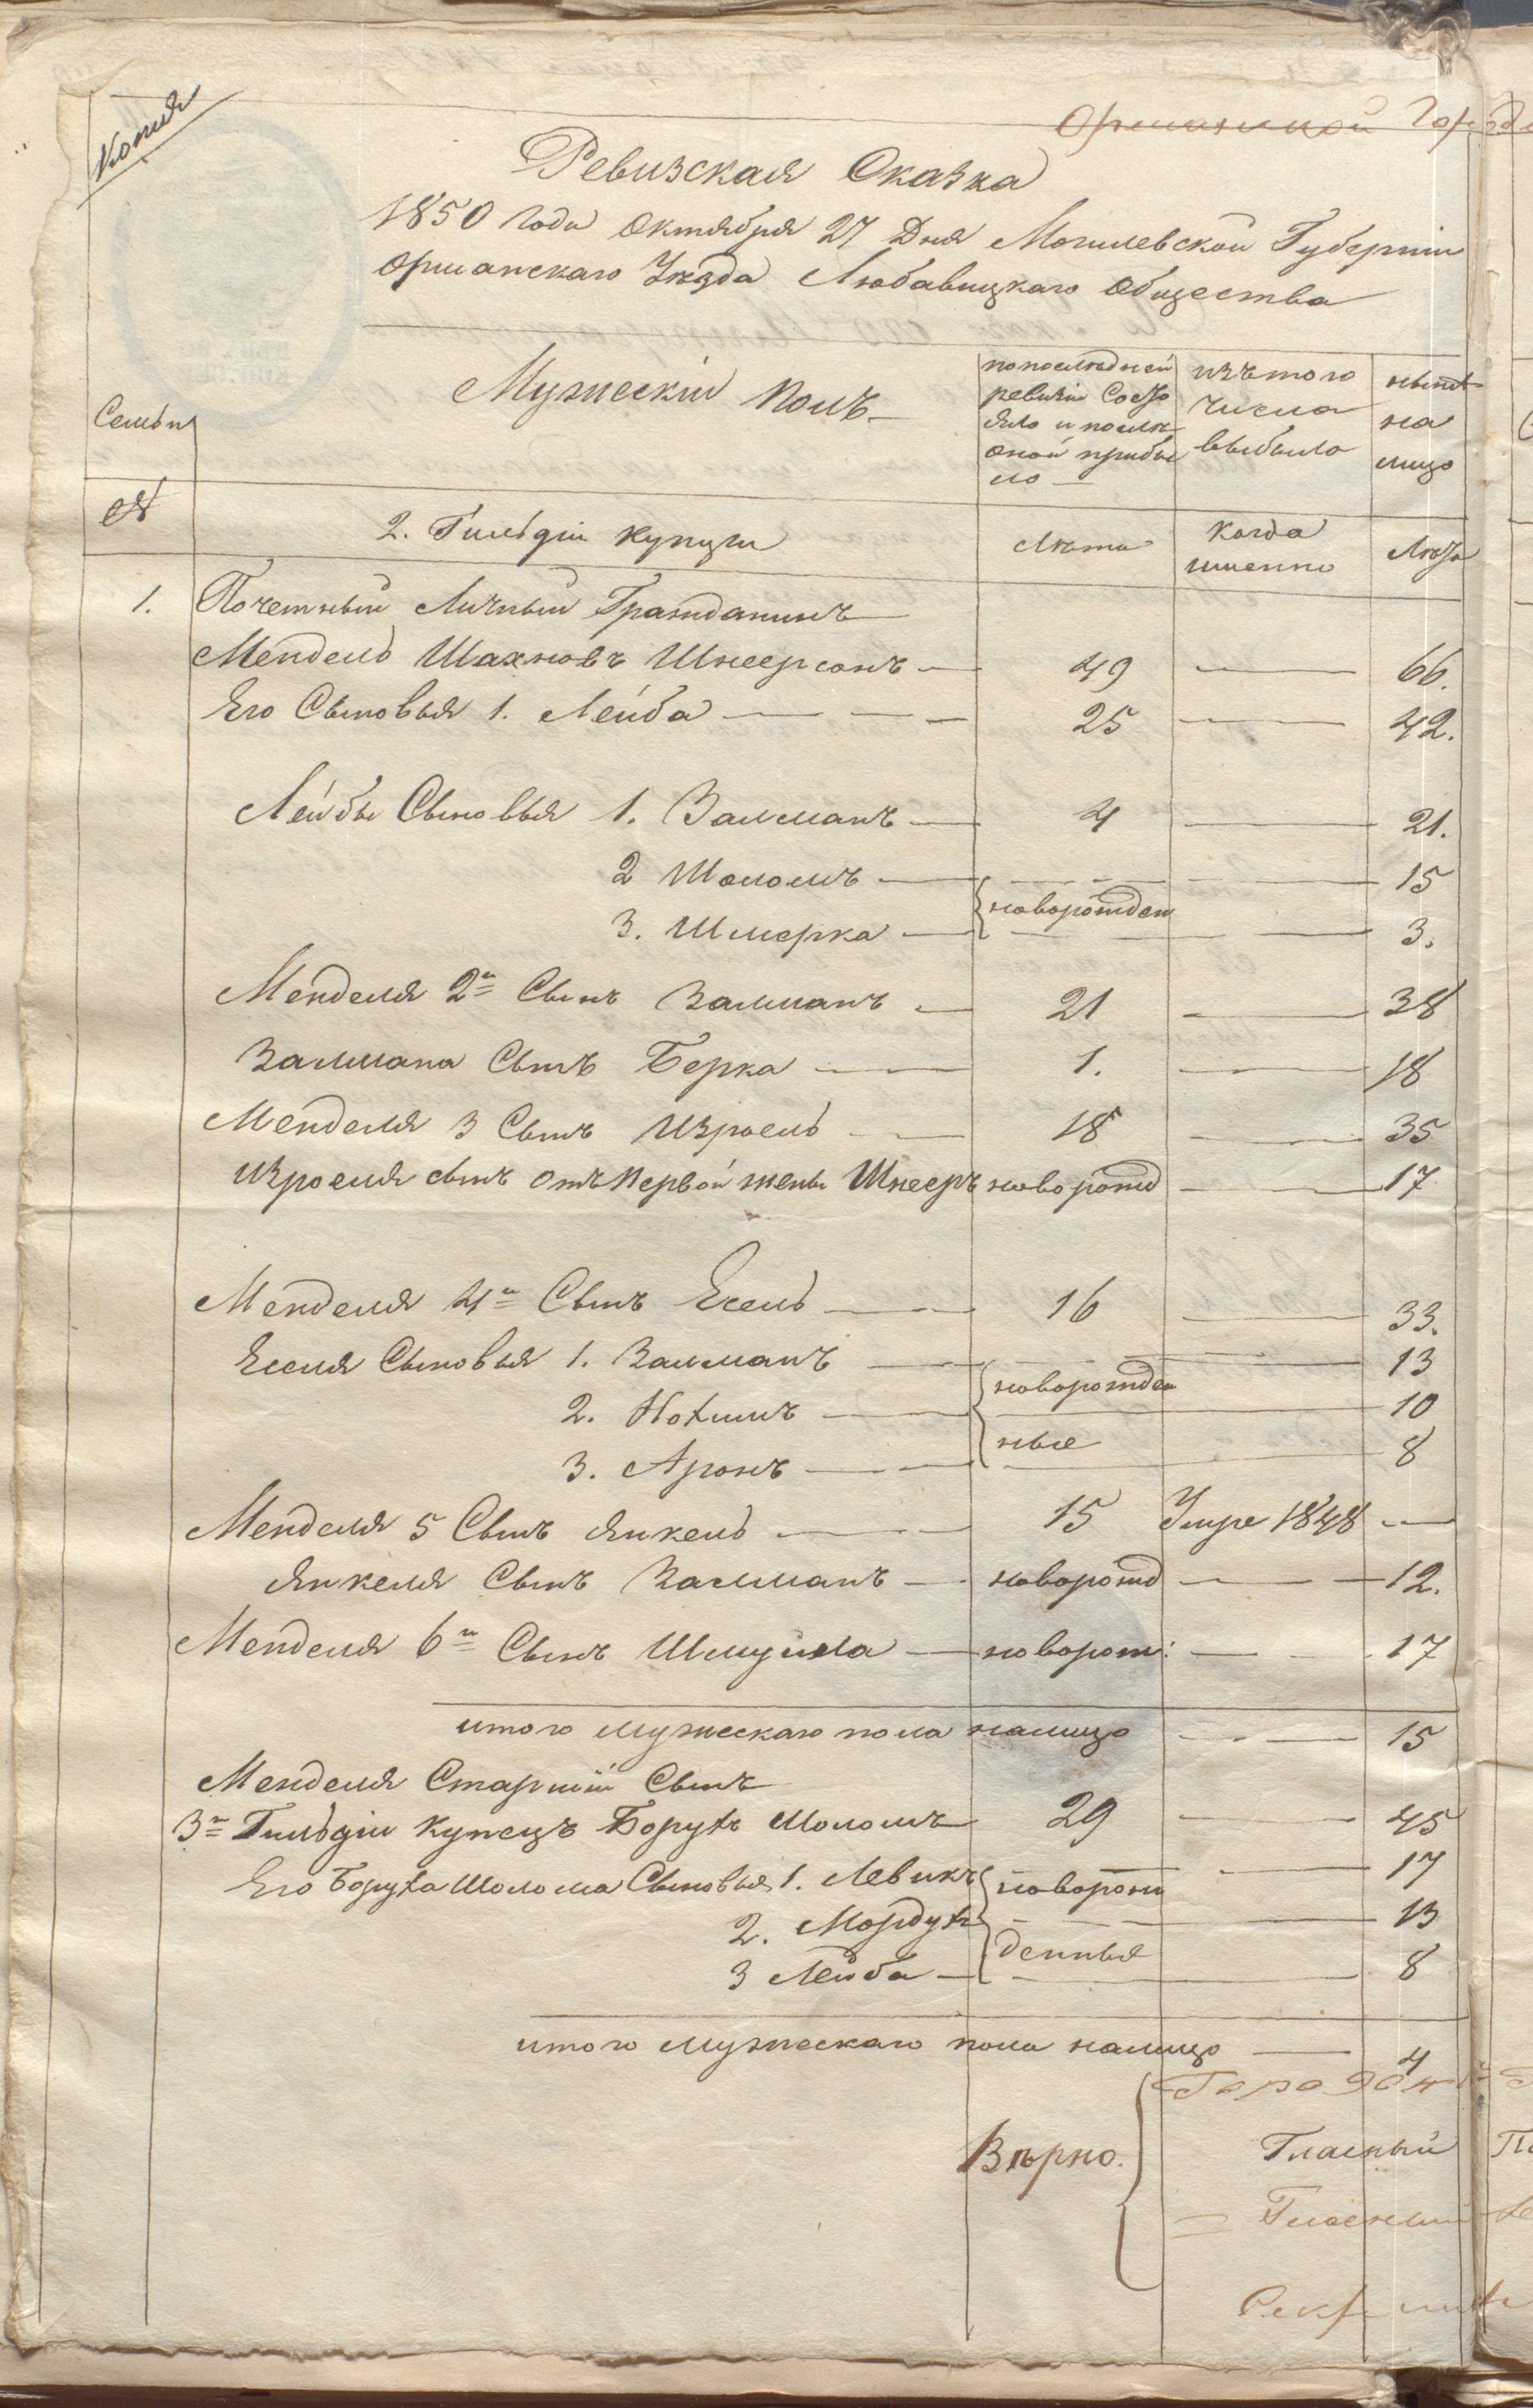 Копия
Оршанской Город
Ревизская Сказка
1850 Года Октября 27 Дня Могилевской Губерніи
Оршанскаго Уѣзда Любавицкаго Общества
Семьи
Мужескій полъ
по последней ревизіи Состояло и послѣ оной прибыло
изъ того числа выбыло
нынѣ на лицо
№
2. Гильдіи купцы
Лѣта
Когда именно
Лѣта
1. Почетный Личный Гражданинъ
Мендель Шахновъ Шнеерсонъ — 49 — 66.
Его Сыновья 1. Лейба — 25 — 42.
Лейбы Сыновья 1. Залманъ — 4 — 21.
2 Шоломъ — 15
новорожден
3. Шмерка — 3.
Менделя 2й Сынъ Залманъ — 21 — 38
Залмана Сынъ Берка — 1. — 18
Менделя 3 Сынъ Израель — 18 — 35
Израеля сынъ отъ Первой жены Шнееръ новорожд — 17
Менделя 4й Сынъ Есель — 16 — 33.
Еселя Сыновья 1. Залманъ — 13
новорожден
2. Нохимъ — 10
ные
3. Аронъ — 8
Менделя 5 Сынъ Янкель — 15 Умре 1848 —
Янкеля Сынъ Залманъ — новорожд — 12.
Менделя 6й Сынъ Шмуйла — новорож: — 17
итого мужескаго пола налицо — 15
Менделя Старшій Сынъ
3й Гильдіи Купецъ Борухъ Шоломъ 29 — 45
Его Боруха Шолома Сыновья 1. Левикъ новорож — 17
2. Мордухъ — 13
денныя
3 Лейба — 8
итого мужескаго пола налицо — 4
Вѣрно.
Гласный
Гласный